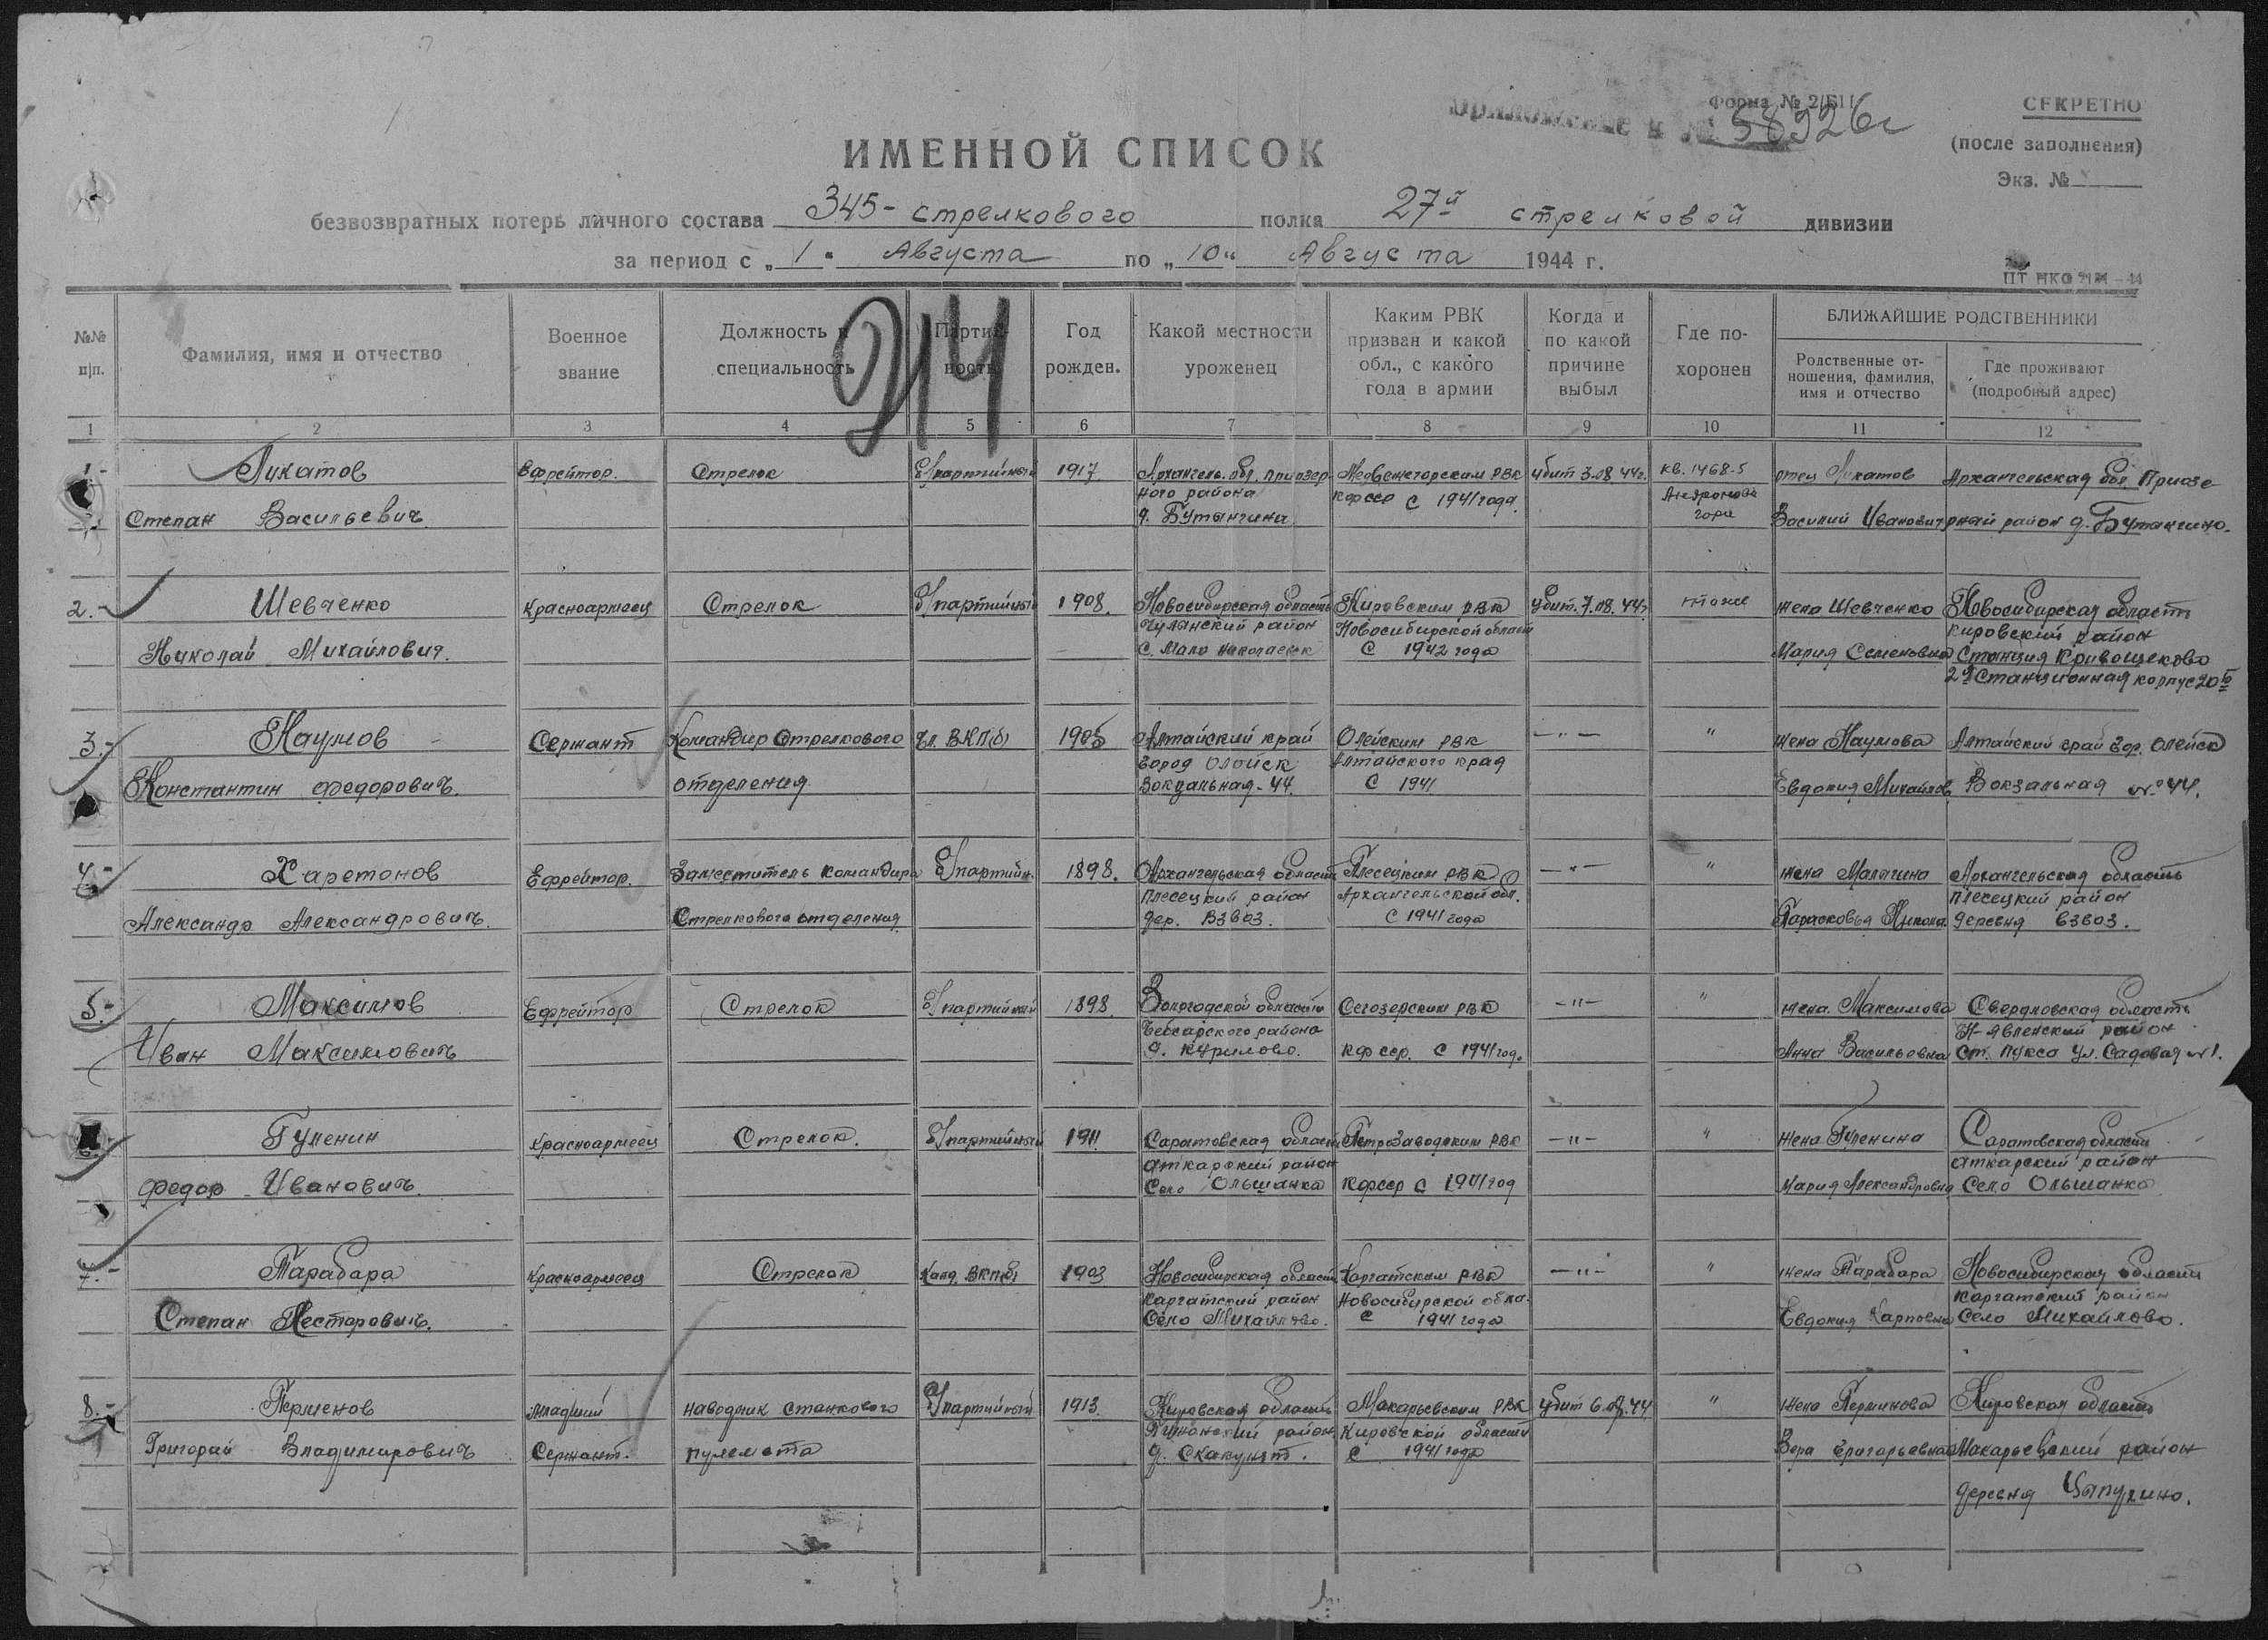 Форма № 2/БП
СЕКРЕТНО
Приложение к № 58926с
(после заполнения)
Экз. №
ИМЕННОЙ СПИСОК
безвозвратных потерь личного состава 345 - стрелкового полка 27й стрелковой дивизии
за период с „1“ Августа по „10“ Августа 1944 г.
214
№№ п/п.
Фамилия, имя и отчество
Военное звание
Должность и специальность
Партийность
Год рожден.
Какой местности уроженец
Каким РВК призван и какой обл., с какого года в армии
Когда и по какой причине выбыл
Где похоронен
БЛИЖАЙШИЕ РОДСТВЕННИКИ
Родственные отношения, фамилия, имя и отчество
Где проживают (подробный адрес)
1 2 3 4 5 6 7 8 9 10 11 12
1.- Ликатов Ефрейтор. Стрелок б/партийный 1917 Архангель. обл. приозер- Медвежегорским РВК убит 3.08 44г. кв. 1468-5 отец Ликатов Архангельская обл. Приозе
ного района кфсср с 1941 года.
Степан Васильевич д. Бутынгина гора Василий Иванович рный район д. Бутангино.
2.- Шевченко Красноармеец Стрелок б/партийный 1908. Новосибирская область Кировским РВК Убит. 7.08.44г. тоже жена Шевченко Новосибирская область
Чуланский район Новосибирской области кировский район
Николай Михайлович. с. Мало николаевск с 1942 года Мария Семеновна Станция Кривощеково
2я Станционная корпус 20
3.- Наумов Сержант Командир Стрелкового чл. ВКП(б) 1905 Алтайский край Олейским РВК -"- " жена Наумова Алтайский край гор. Олейск
город Олойск Алтайского края
Константин Федорович. отделения Вокзальная-44. с 1941 Евдокия Михайлов Вокзальная № 44.
4.- Харетонов Ефрейтор. Заместитель командира б/партийн. 1898. Архангельская область Плесецким РВК -"- " жена Малыгина Архангельская область
плесецкий район Архангельской обл. плесецкий район
Александр Александрович. Стрелкового отделения дер. Взвоз. с 1941 года Парасковья Никола. деревня взвоз.
5.- Максимов Ефрейтор Стрелок б/партийный 1898. Вологодской области Сегозерским РВК -"- " жена. Максимова Свердловская область
Чебсарского района Н-явленский район
Иван Максимович д. Курилово. кфсср. с 1941 год. Анна Васильевна ст. пукса ул. Садовая № 1.
6.- Гуленин Красноармеец Стрелок. б/партийный 1911. Саратовская область Петрозаводским РВК -"- " Жена Гуленина Саратовская область
аткарский район аткарский район
Федор Иванович. село Ольшанка кфсср с 1941 год Мария Александровна Село Ольшанка
7.- Тарабара Красноармеец Стрелок Канд. ВКП(б) 1903 Новосибирская область Каргатским РВК -"- " жена Тарабара Новосибирская область
каргатский район Новосибирской обла. каргатский район
Степан Несторович. Село Михайлово. с 1941 года Евдокия Карповна Село Михайлово.
8.- Перменов младший наводчик станкового б/партийный 1913. Кировская область Макарьевским РВК убит 6.08.44 " Жена Перминова Кировская область
район Кировской области
Григорай Владимирович Сержант. пулемета д. Скакунят. с 1941 года Вера Григорьевна Макарьевский район
деревня Цапугино.